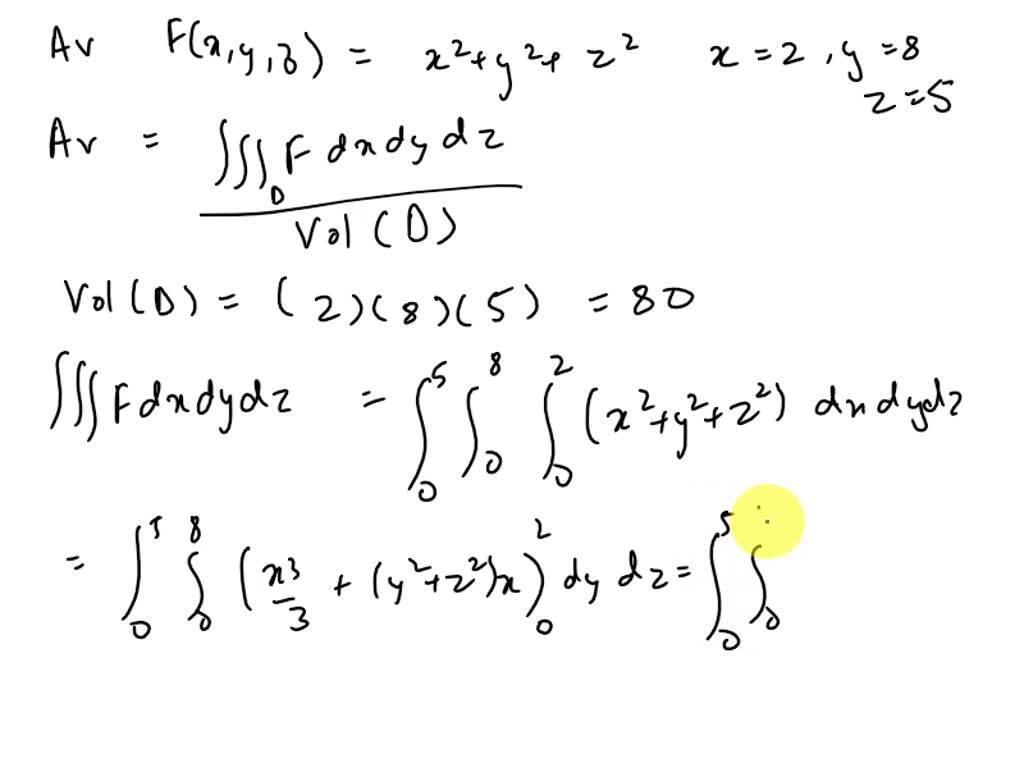 Av F(x,y,z) = x²+y²+z² x=2, y=8
z=5
Av = ∭_D F dx dy dz
Vol(D)
Vol(D) = (2)(8)(5) = 80
∭ F dx dy dz = ∫₀⁵ ∫₀⁸ ∫₀² (x²+y²+z²) dx dy dz
= ∫₀⁵ ∫₀⁸ (x³/3 + (y²+z²)x)₀² dy dz = ∫₀⁵ ∫₀